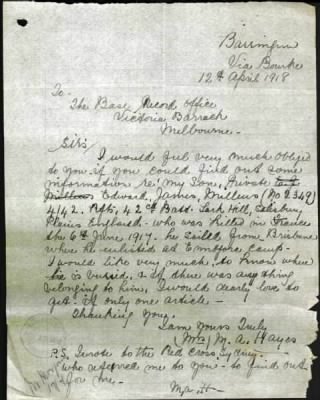 Barringun
Via Bourke
12th April 1918
To-
The Base Record Office
Victoria Barrack
Melbourne-
Sirs
I would feel very much obliged
to you if you could find out some
information re. My Son, Private
Edward, James, Mullens (No 2349)
4/42. Rfts, 42nd Batt. Lark Hill, Salisbury
Plains England- who was killed in France
the 6th June, 1917. he sailed from Brisbane
where he enlisted at Enoggera Camp-
I would like very much, to know where
he is buried, & if there was any thing
belonging to him, I would dearly love to
get. if only one article-
Thanking You.
I am Yours Truly
Mrs M. A. Hayes
P.S. I wrote to the Red Cross Sydney-
who referred me to you- to find out
for me-
M.A. H-